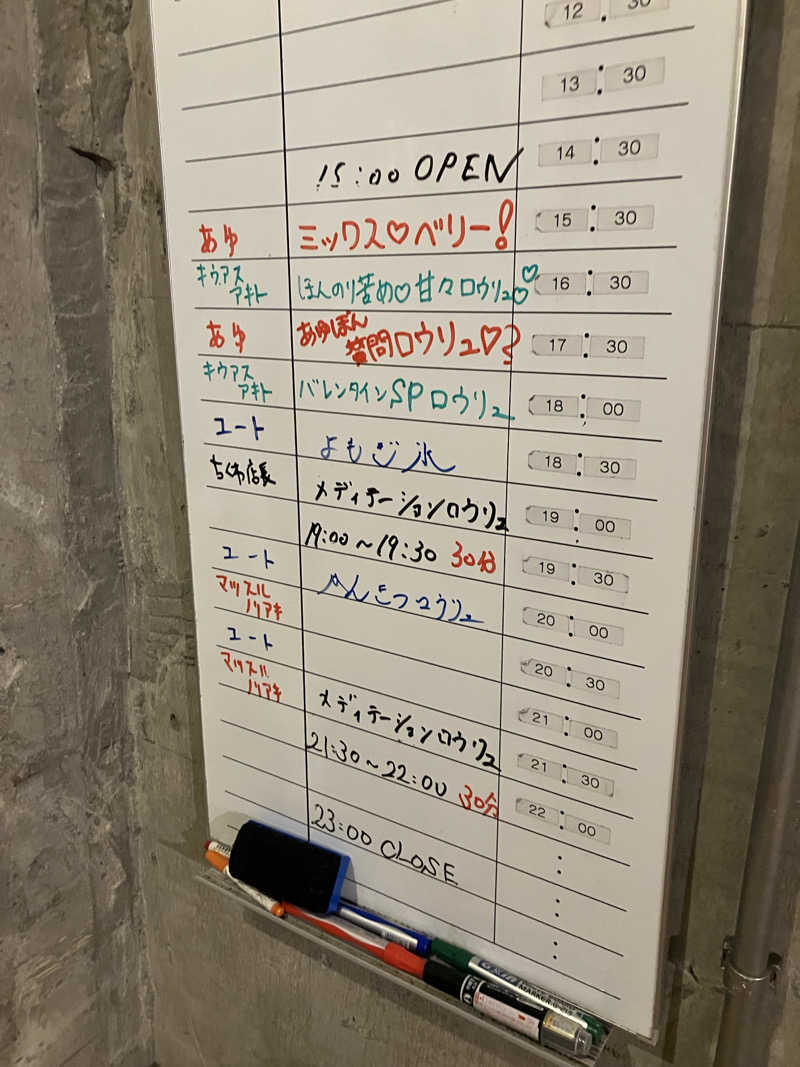 12 : 30
13 : 30
15:00 OPEN 14 : 30
あゆ ミックス♡ベリー! 15 : 30
キウアス アキト ほんのり苦め♡甘々ロウリュ♡♡ 16 : 30
あゆ あゆぽん 質問ロウリュ♡? 17 : 30
キウアス アキト バレンタインSPロウリュ 18 : 00
ユート よもぎ氷 18 : 30
ちくわ店長 メディテーションロウリュ 19 : 00
19:00〜19:30 30分 19 : 30
ユート ロウリュ 20 : 00
マッスル ノリアキ 20 : 30
ユート 21 : 00
マッスル ノリアキ メディテーションロウリュ 21 : 30
21:30〜22:00 30分 22 : 00
23:00 CLOSE